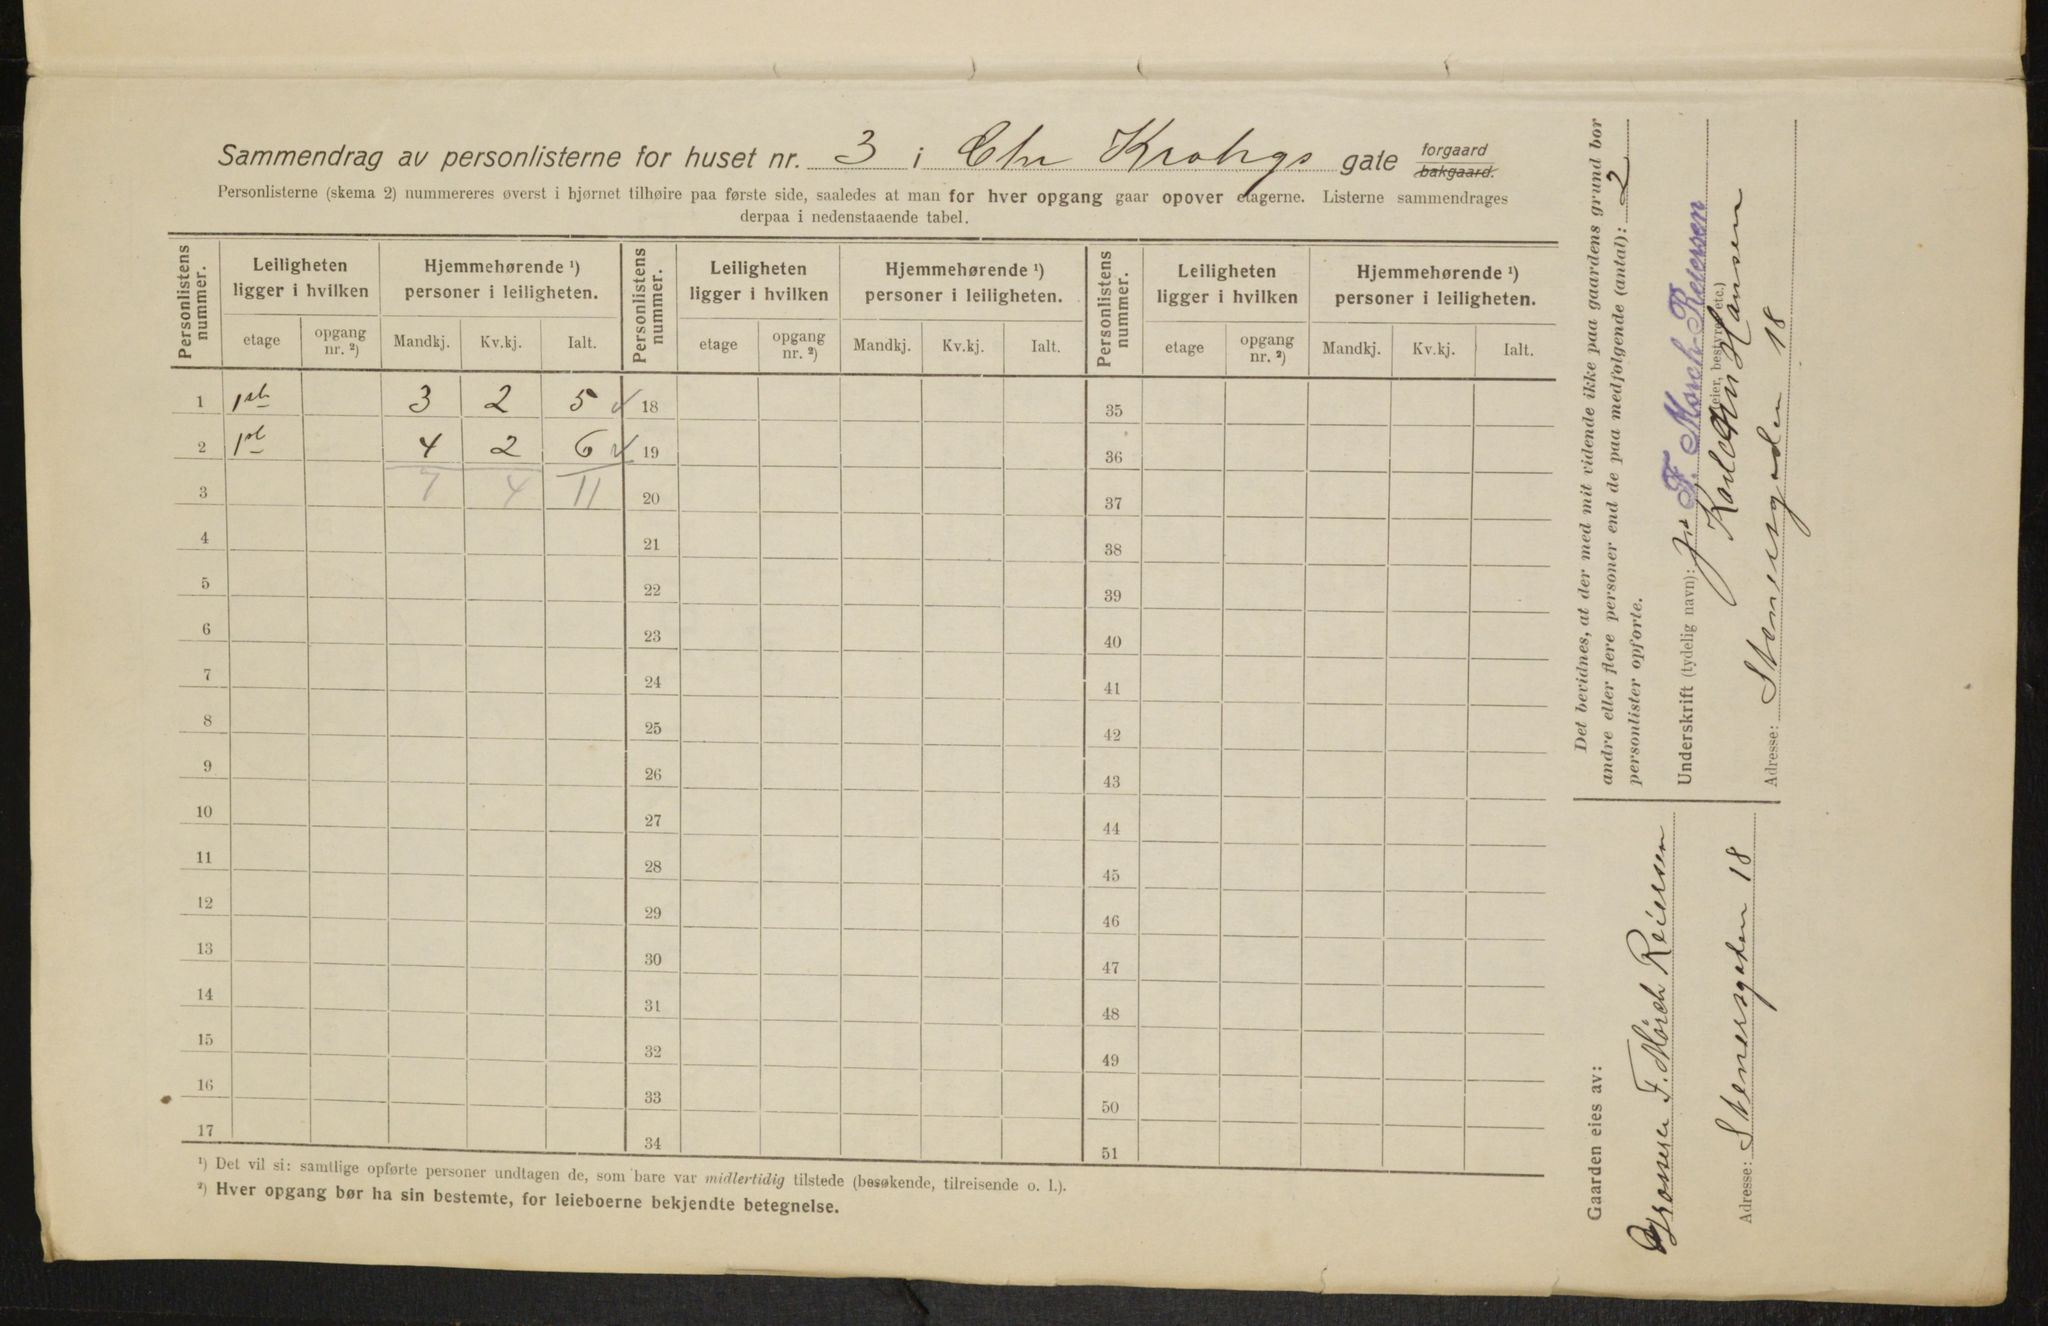 Sammendrag av personlisterne for huset nr. 3 i Chr Krohgs gate forgaard bakgaard.
Personlisterne (skema 2) nummereres øverst i hjørnet tilhøire paa første side, saaledes at man for hver opgang gaar opover etagerne. Listerne sammendrages
derpaa i nedenstaaende tabel.
Personlistens nummer. Leiligheten ligger i hvilken Hjemmehørende ¹) personer i leiligheten. Personlistens nummer. Leiligheten ligger i hvilken Hjemmehørende ¹) personer i leiligheten. Personlistens nummer. Leiligheten ligger i hvilken Hjemmehørende ¹) personer i leiligheten.
etage opgang nr. ²) Mandkj. Kv.kj. Ialt. etage opgang nr. ²) Mandkj. Kv.kj. Ialt. etage opgang nr. ²) Mandkj. Kv.kj. Ialt.
1 1ste 3 2 5 18 35
2 1st 4 2 6 19 36
3 7 4 11 20 37
4 21 38
5 22 39
6 23 40
7 24 41
8 25 42
9 26 43
10 27 44
11 28 45
12 29 46
13 30 47
14 31 48
15 32 49
16 33 50
17 34 51
¹) Det vil si: samtlige opførte personer undtagen de, som bare var midlertidig tilstede (besøkende, tilreisende o. l.).
²) Hver opgang bør ha sin bestemte, for leieboerne bekjendte betegnelse.
Det bevidnes, at der med mit vidende ikke paa gaardens grund bor
andre eller flere personer end de paa medfølgende (antal): 2
personlister opførte.
Underskrift (tydelig navn): F. Mørch-Reiersen
(eier, bestyrer etc.)
Hansen
Adresse: Stenersgaden 18
Gaarden eies av:
Grosserer F. Mørch Reiersen
Adresse: Stenersgaten 18